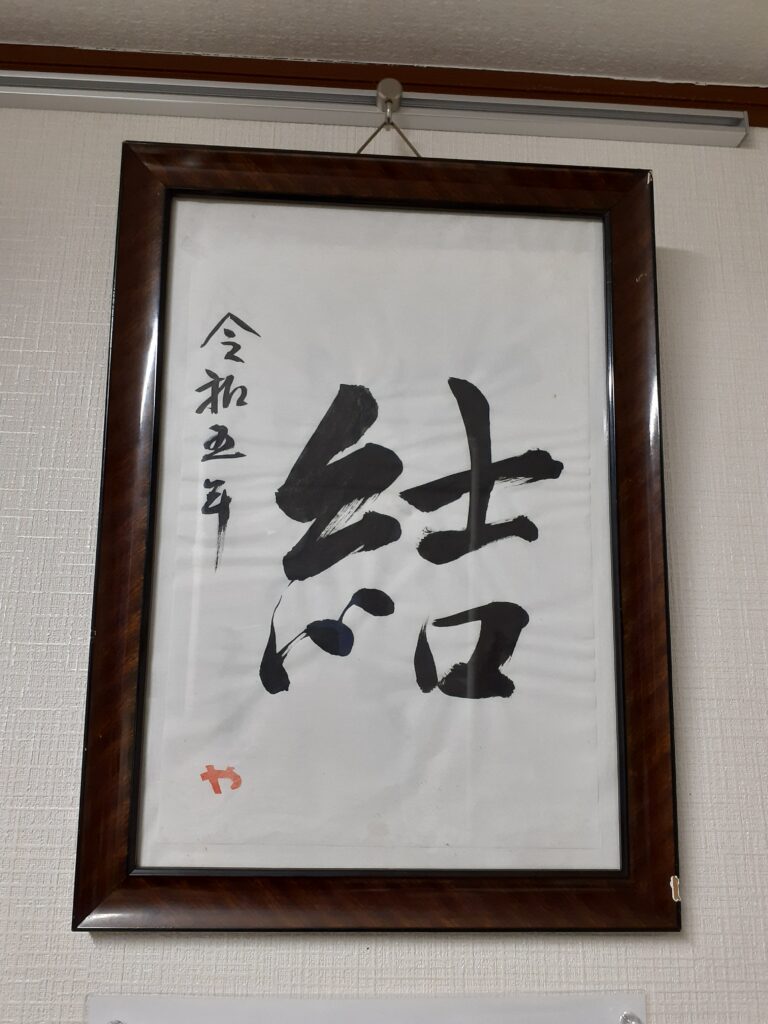 結
令和五年
や